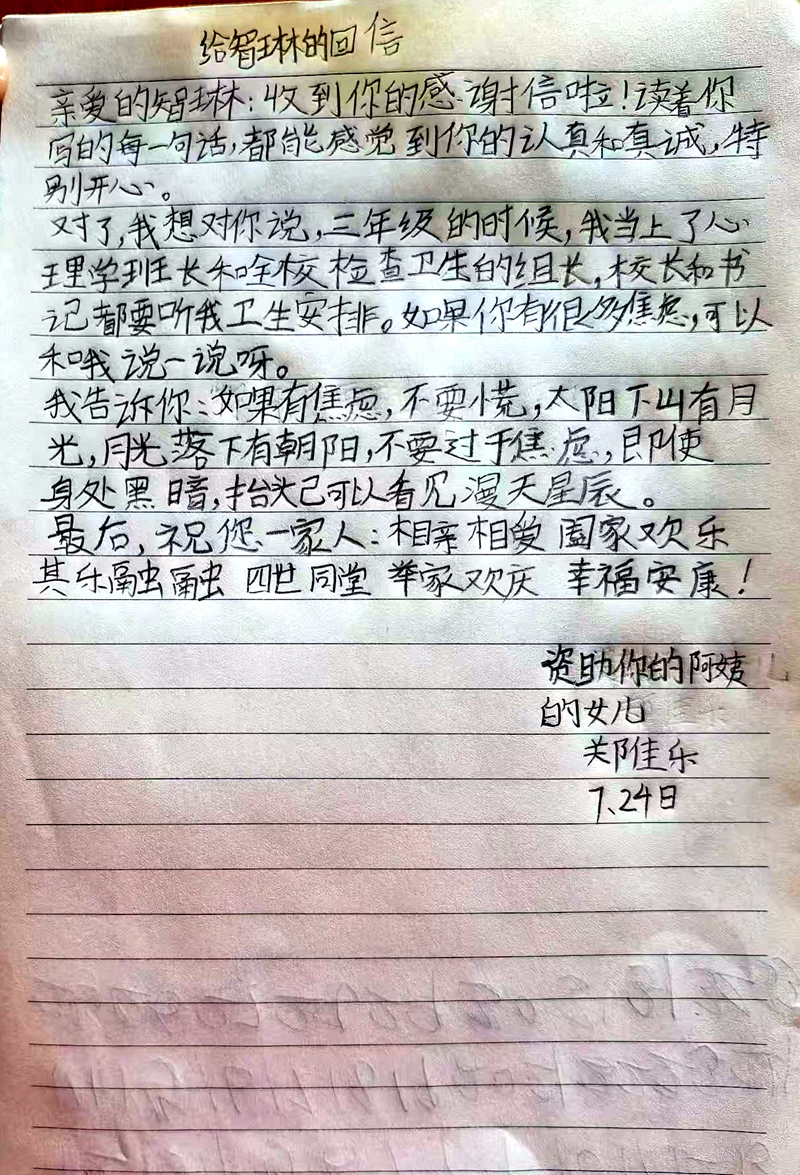 给智琳的回信
亲爱的智琳:收到你的感谢信啦!读着你
写的每一句话,都能感觉到你的认真和真诚,特
别开心。
对了,我想对你说,三年级的时候,我当上了心
理学班长和全校检查卫生的组长,校长和书
记都要听我卫生安排。如果你有很多焦虑,可以
和我说一说呀。
我告诉你:如果有焦虑,不要慌,太阳下山有月
光,月光落下有朝阳,不要过于焦虑,即使
身处黑暗,抬头已可以看见漫天星辰。
最后,祝您一家人:相亲相爱 阖家欢乐
其乐融融 四世同堂 举家欢庆 幸福安康!
资助你的阿姨
的女儿
郑佳乐
7、24日